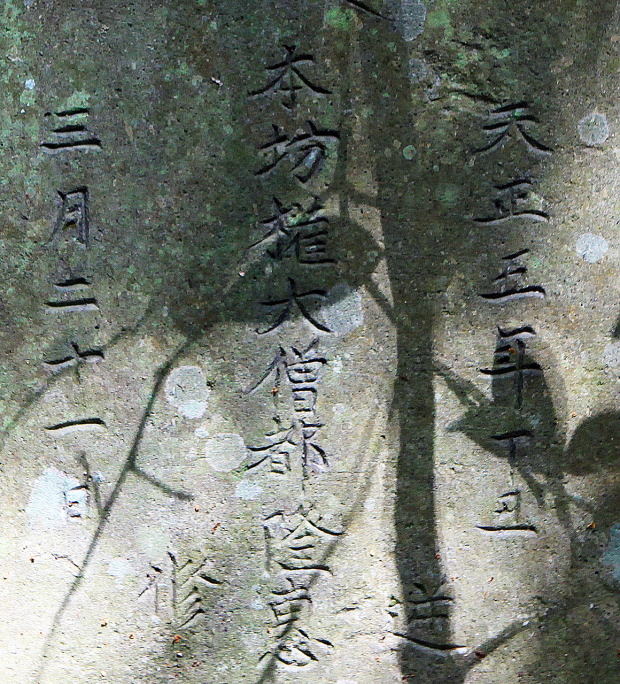 天正五年丁丑
逆
本坊権大僧都隆恵
修
三月二十一日